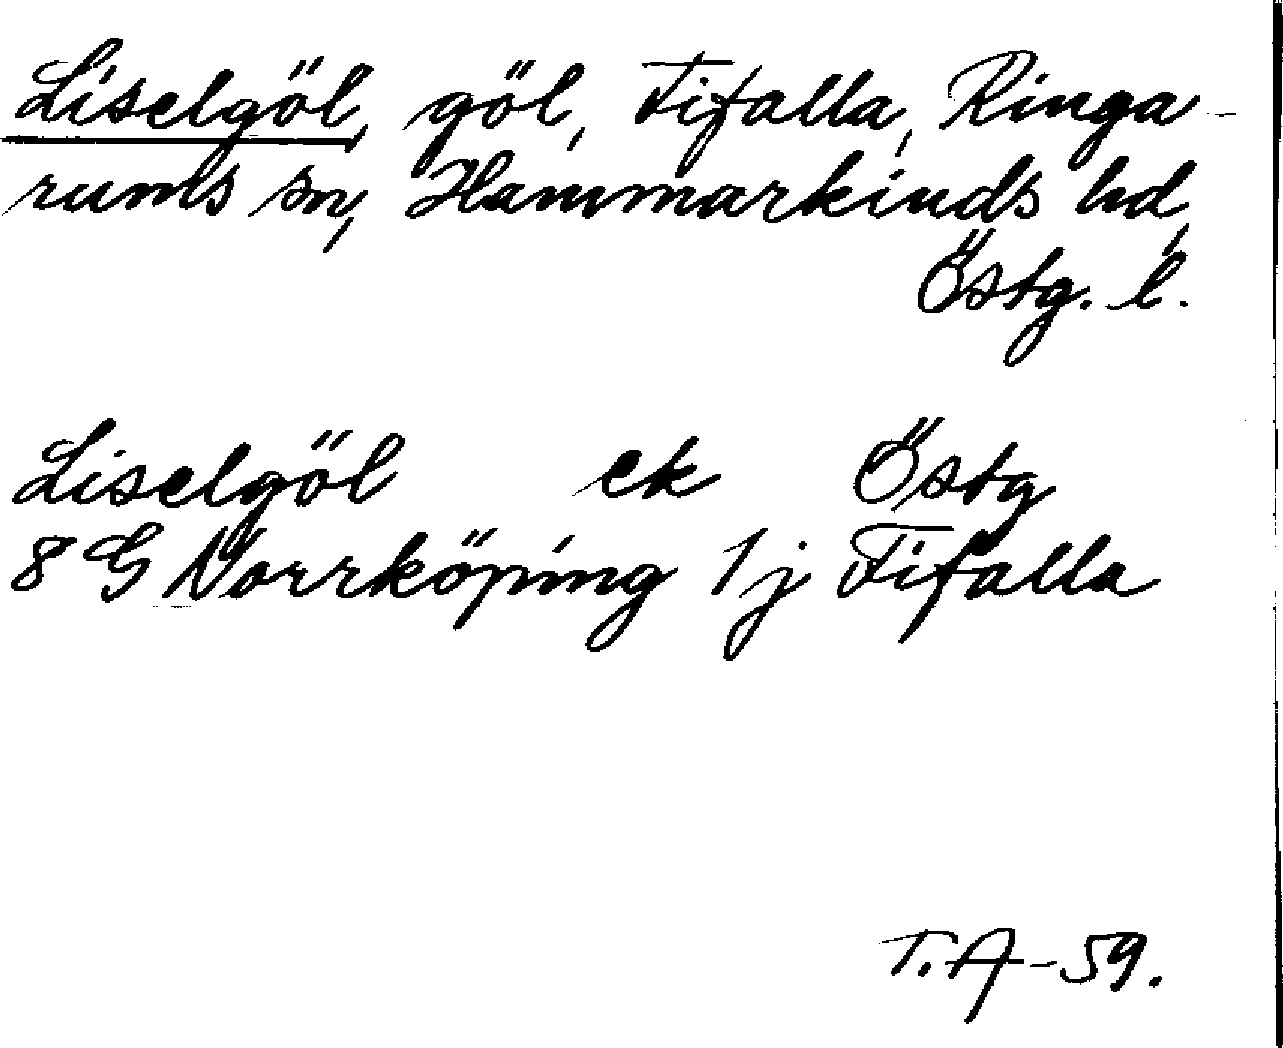 Liselgöl, göl, Fifalla, Ringa-
rums sn, Hammarkinds hd,
Östg. l.
Liselgöl ek Östg
8 G Norrköping 1j Fifalla
T.A-59.